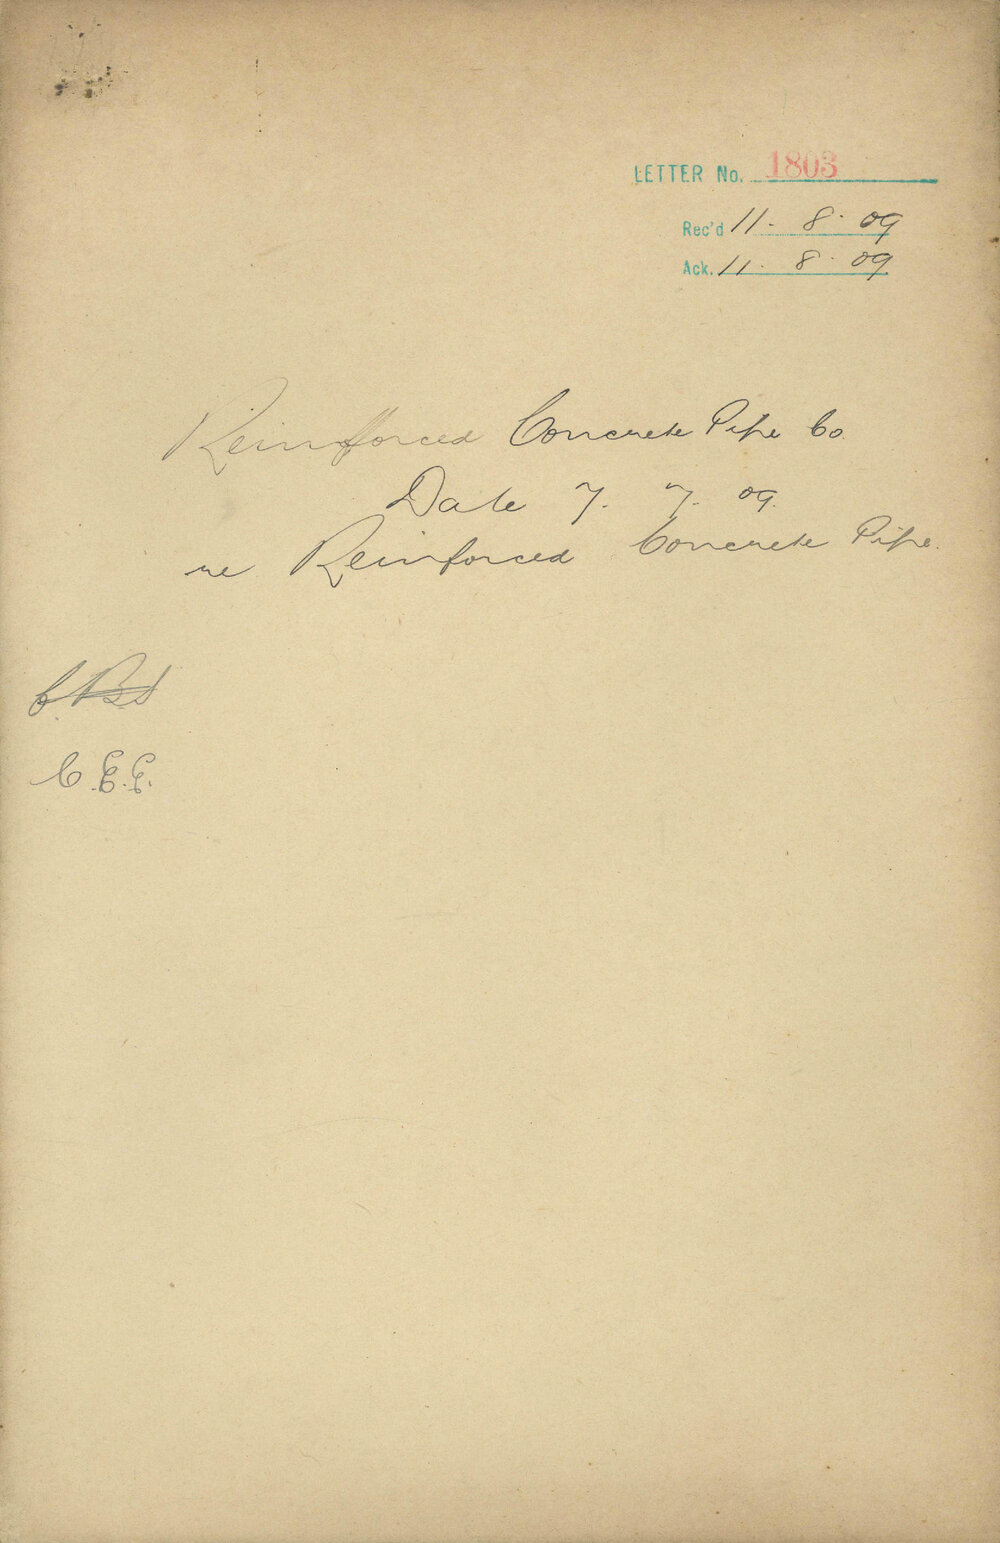 LETTER No. 1803
Rec'd 11. 8. 09
Ack. 11. 8. 09
Reinforced Concrete Pipe Co.
Date 7. 7. 09.
re Reinforced Concrete Pipe.
C.E.E.